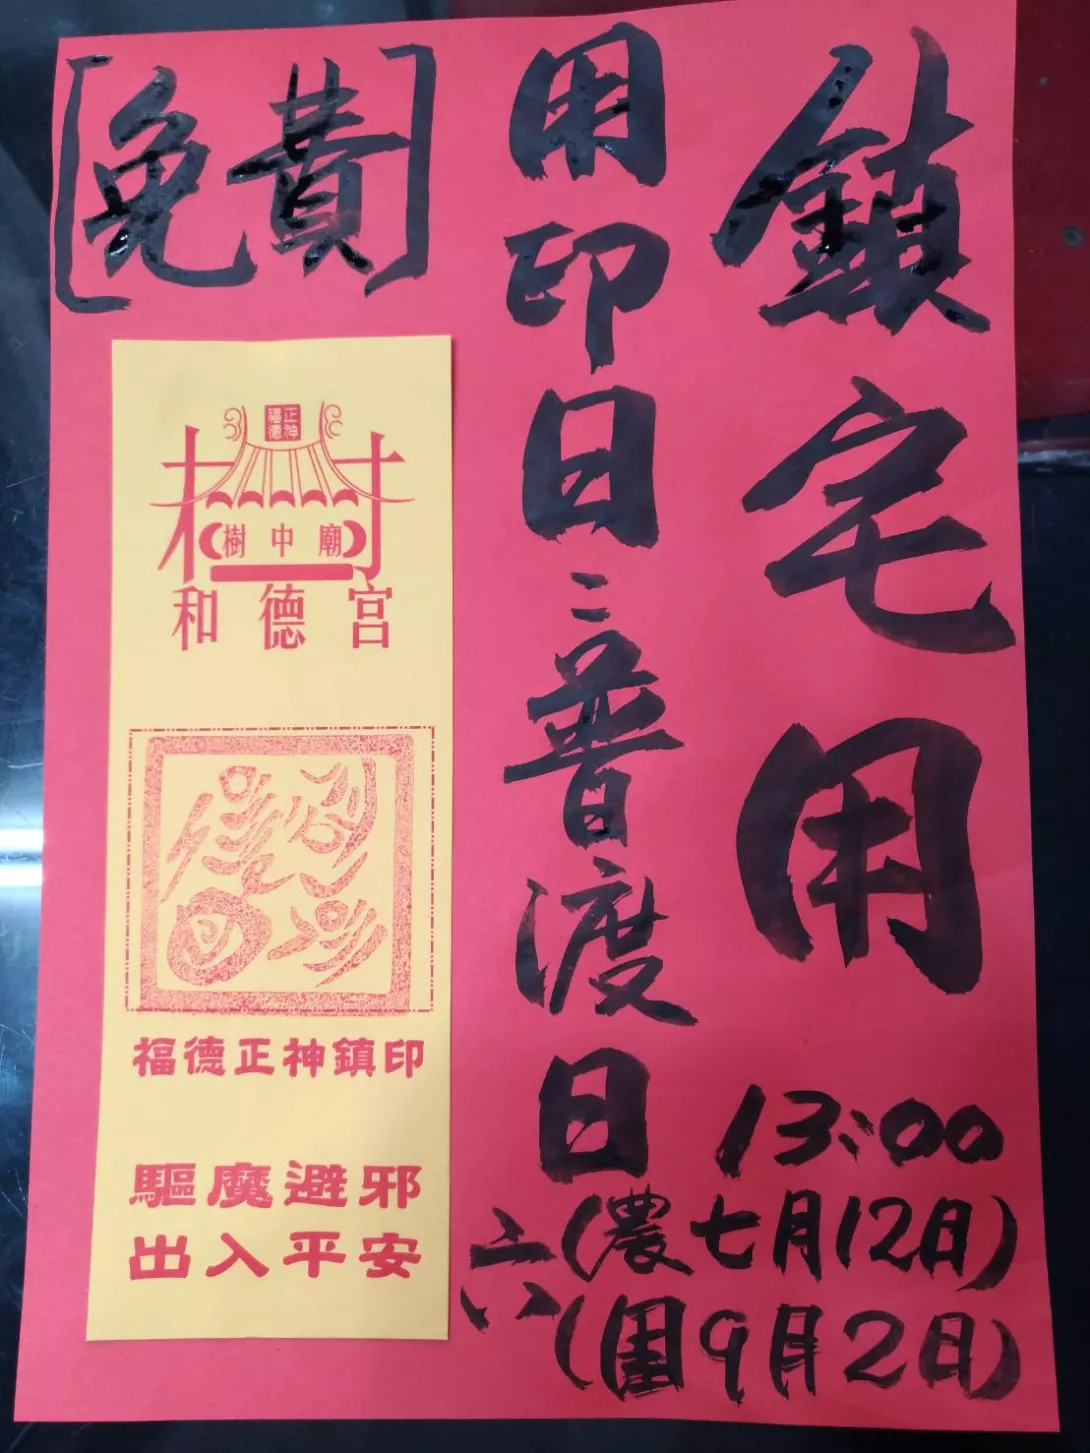 鎮宅用
用印日：普渡日
13:00
六
(農七月12日)
(囯9月2日)
[免費]
正神
福德
樹中廟
和德宮
福德正神鎮印
驅魔避邪
出入平安